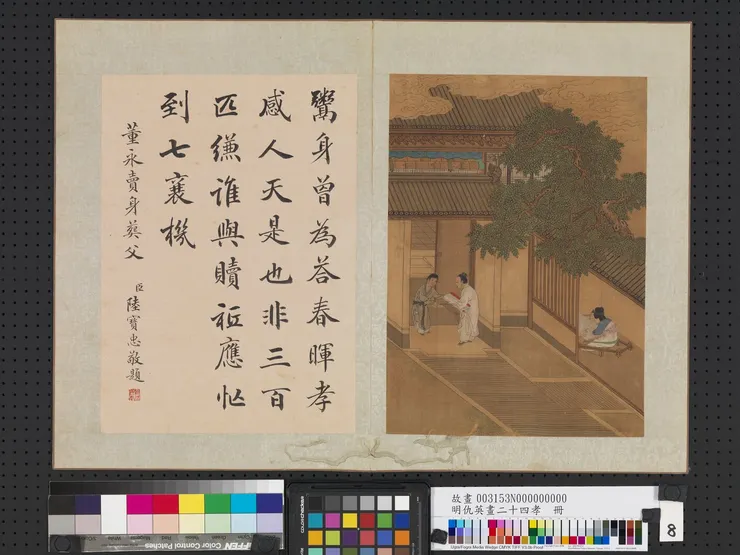 鬻身曾為荅春暉孝
感人天是也非三百
匹縑誰與贖祗應忙
到七襄機
董永賣身葬父
臣陸寶忠敬題
故畫 003153N000000000
明仇英畫二十四孝 冊
8
Color Control Patches